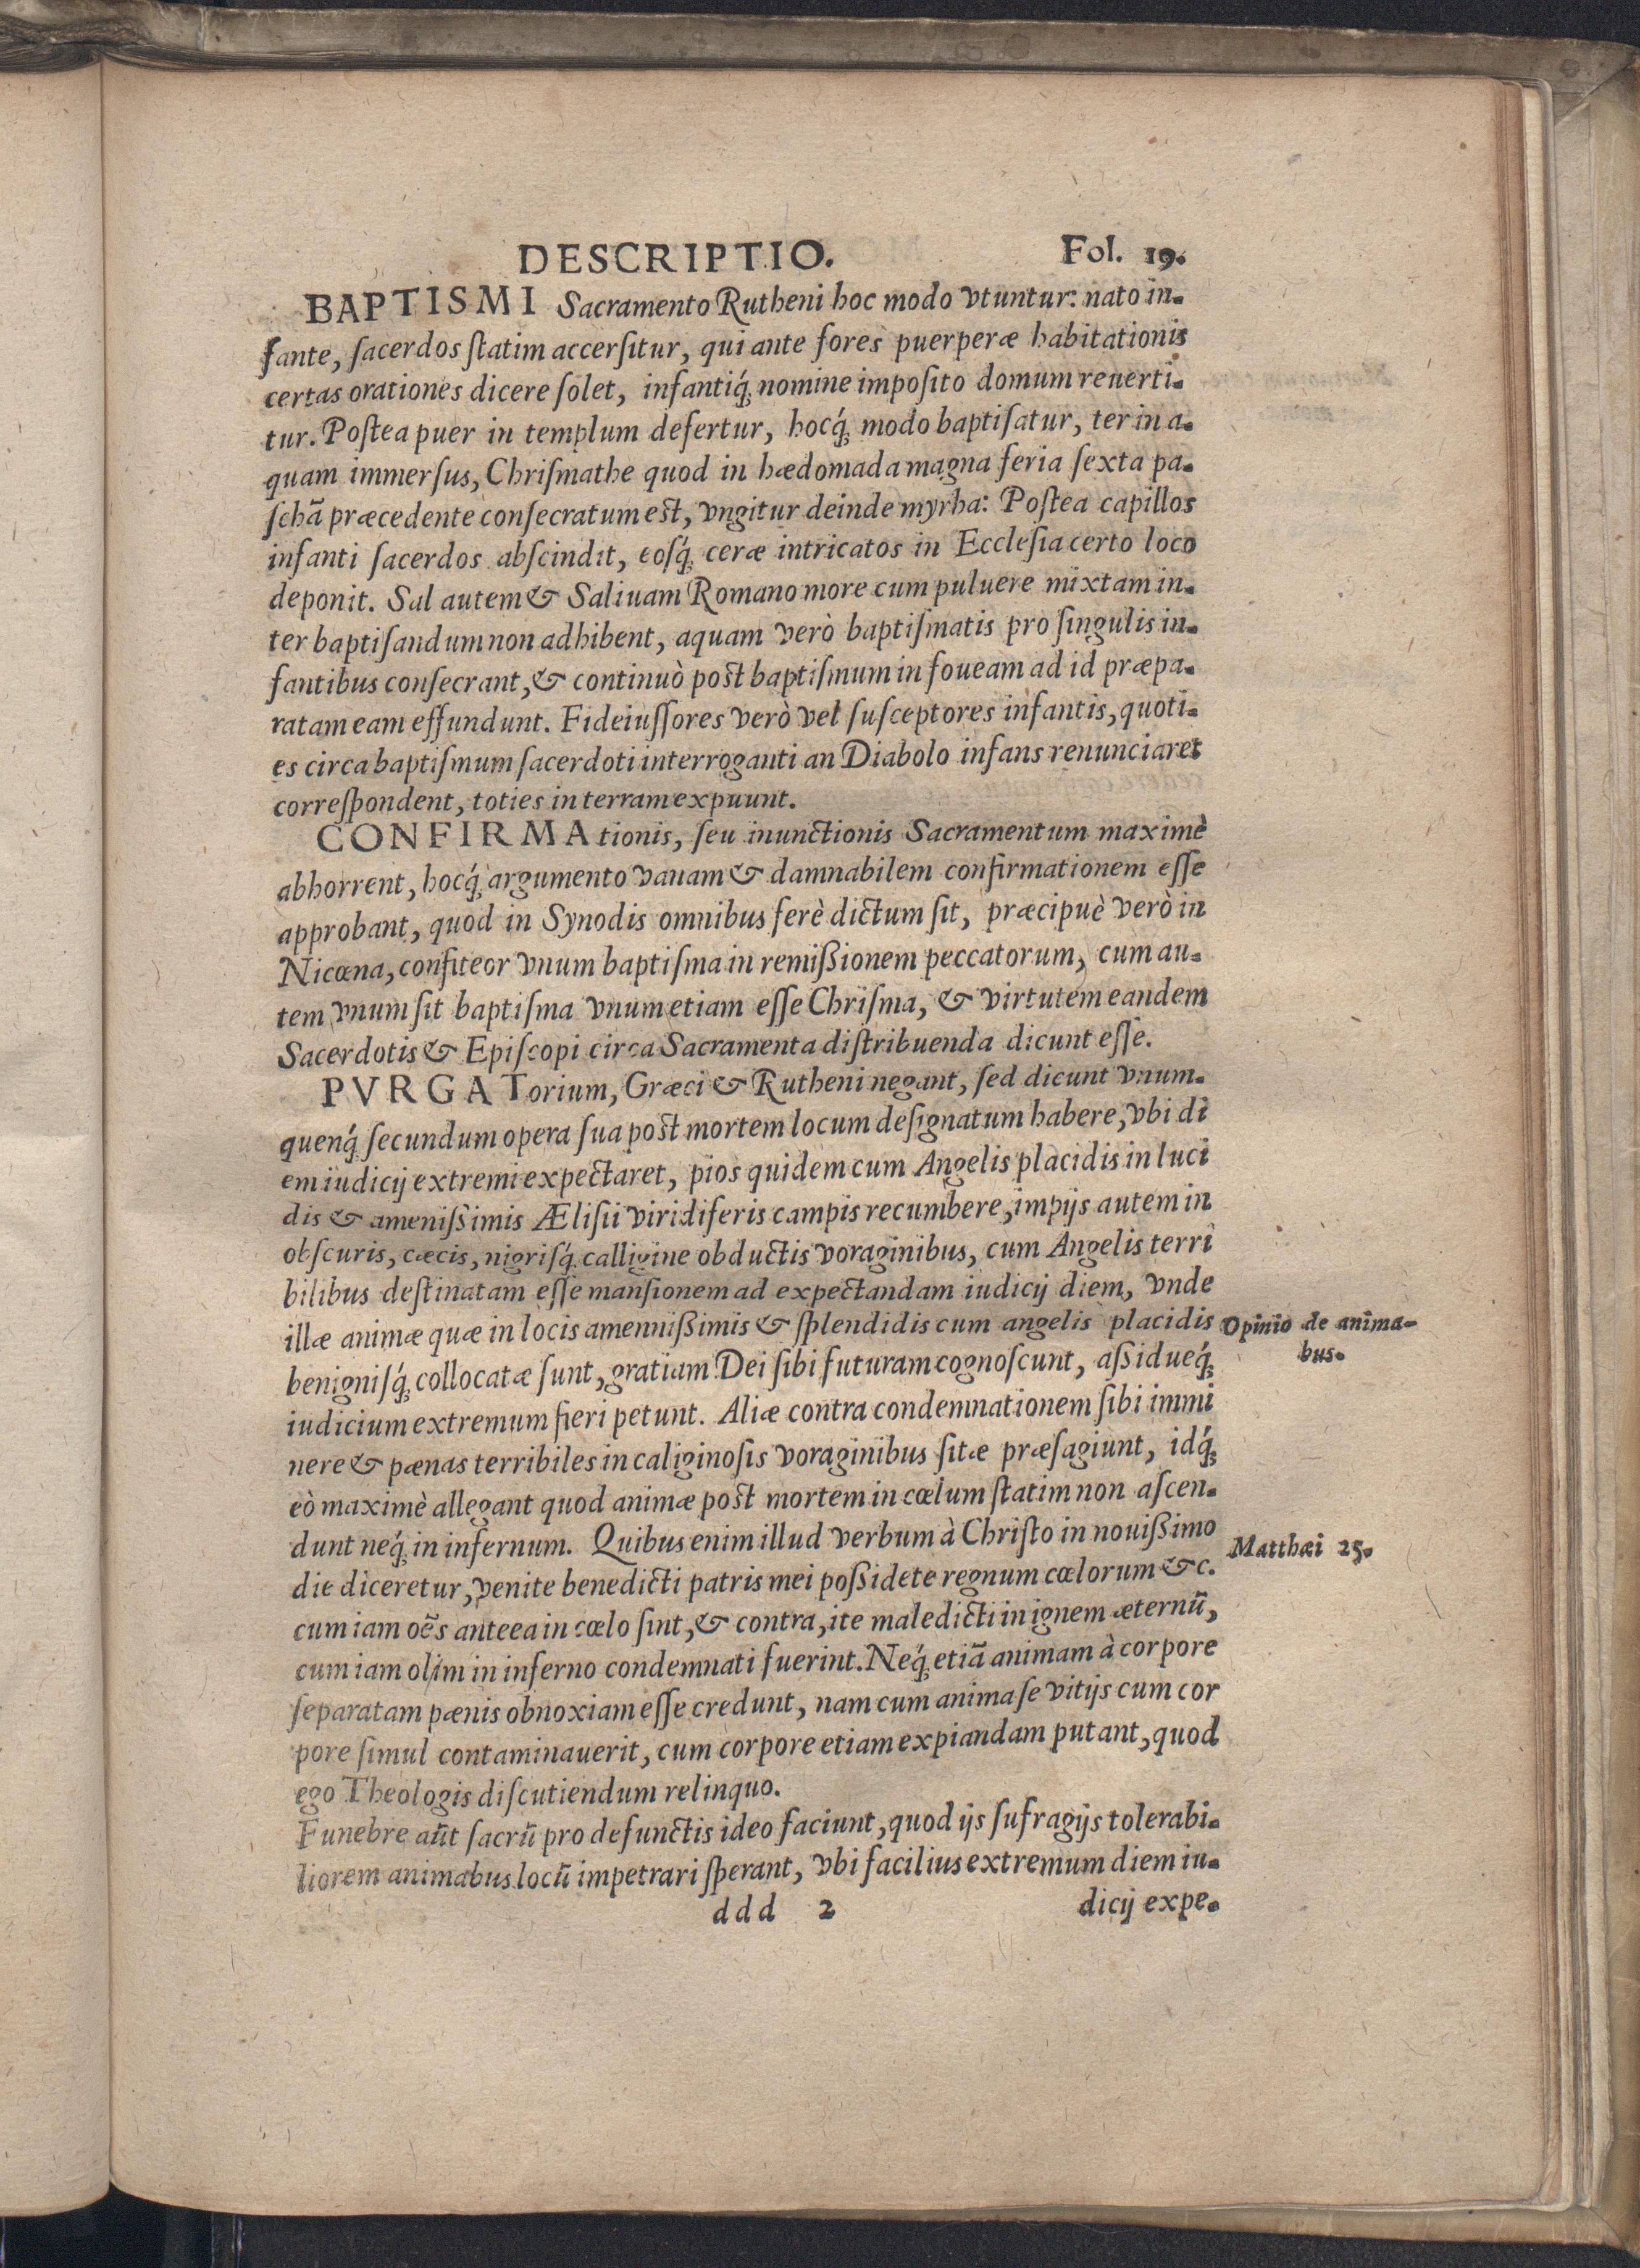 DESCRIPTIO. Fol. 19.
BAPTISMI Sacramento Rutheni hoc modo vtuntur: nato in-
fante, ſacerdos ſtatim accerſitur, qui ante fores puerperæ habitationis
certas orationes dicere ſolet, infantiq́; nomine impoſito domum reuerti-
tur. Poſtea puer in templum defertur, hocq́; modo baptiſatur, ter in a-
quam immerſus, Chriſmathe quod in hædomada magna feria ſexta pa-
ſchã præcedente conſecratum est, vngitur deinde myrha: Poſtea capillos
infanti ſacerdos abſcindit, eoſq́; ceræ intricatos in Eccleſia certo loco
deponit. Sal autem & Saliuam Romano more cum puluere mixtam in-
ter baptiſandum non adhibent, aquam verò baptiſmatis pro ſingulis in-
fantibus conſecrant, & continuò post baptiſmum in foueam ad id præpa-
ratam eam effundunt. Fideiuſſores verò vel ſuſceptores infantis, quoti-
es circa baptiſmum ſacerdoti interroganti an Diabolo infans renunciaret
correſpondent, toties in terram expuunt.
CONFIRMAtionis, ſeu inunctionis Sacramentum maximè
abhorrent, hocq́; argumento vanam & damnabilem confirmationem eſſe
approbant, quod in Synodis omnibus ferè dictum ſit, præcipuè verò in
Nicœna, confiteor vnum baptiſma in remißionem peccatorum, cum au-
tem vnum ſit baptiſma vnum etiam eſſe Chriſma, & virtutem eandem
Sacerdotis & Epiſcopi circa Sacramenta diſtribuenda dicunt eſſe.
PVRGATorium, Græci & Rutheni negant, ſed dicunt vnum-
quenq́; ſecundum opera ſua post mortem locum deſignatum habere, vbi di
em iudicij extremi expectaret, pios quidem cum Angelis placidis in luci
dis & amenißimis Æliſii viridiferis campis recumbere, impijs autem in
obſcuris, cæcis, nigriſq́; calligine obductis voraginibus, cum Angelis terri
bilibus deſtinatam eſſe manſionem ad expectandam iudicij diem, vnde
illæ animæ quæ in locis amennißimis & ſplendidis cum angelis placidis
Opinio de anima-
bus.
benigniſq́; collocatæ ſunt, gratiam Dei ſibi futuram cognoſcunt, aßidueq́;
iudicium extremum fieri petunt. Aliæ contra condemnationem ſibi immi
nere & pænas terribiles in caliginoſis voraginibus ſitæ præſagiunt, idq́;
eò maximè allegant quod animæ post mortem in cœlum ſtatim non aſcen-
dunt neq́; in infernum. Quibus enim illud verbum à Chriſto in nouißimo
Matthæi 25.
die diceretur, venite benedicti patris mei poßidete regnum cœlorum &c.
cum iam oẽs anteea in cœlo ſint, & contra, ite maledicti in ignem æternũ,
cum iam olim in inferno condemnati fuerint. Neq́; etiã animam à corpore
ſeparatam pænis obnoxiam eſſe credunt, nam cum anima ſe vitijs cum cor
pore ſimul contaminauerit, cum corpore etiam expiandam putant, quod
ego Theologis diſcutiendum relinquo.
Funebre aũt ſacrũ pro defunctis ideo faciunt, quod ijs ſufragijs tolerabi-
liorem animabus locũ impetrari ſperant, vbi facilius extremum diem iu-
ddd 2 dicij expe-